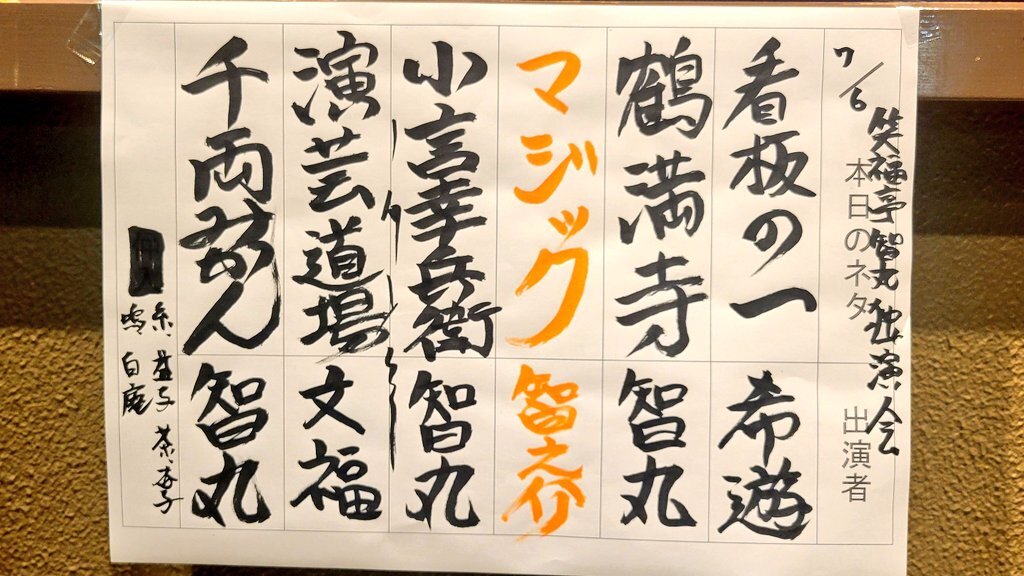 7/6 笑福亭智丸独演会
本日のネタ 出演者
看板の一 希遊
鶴満寺 智丸
マジック 智之介
小言幸兵衛 智丸
演芸道場 文福
千両みかん 智丸
糸 益子 茶子
鳴 白鹿